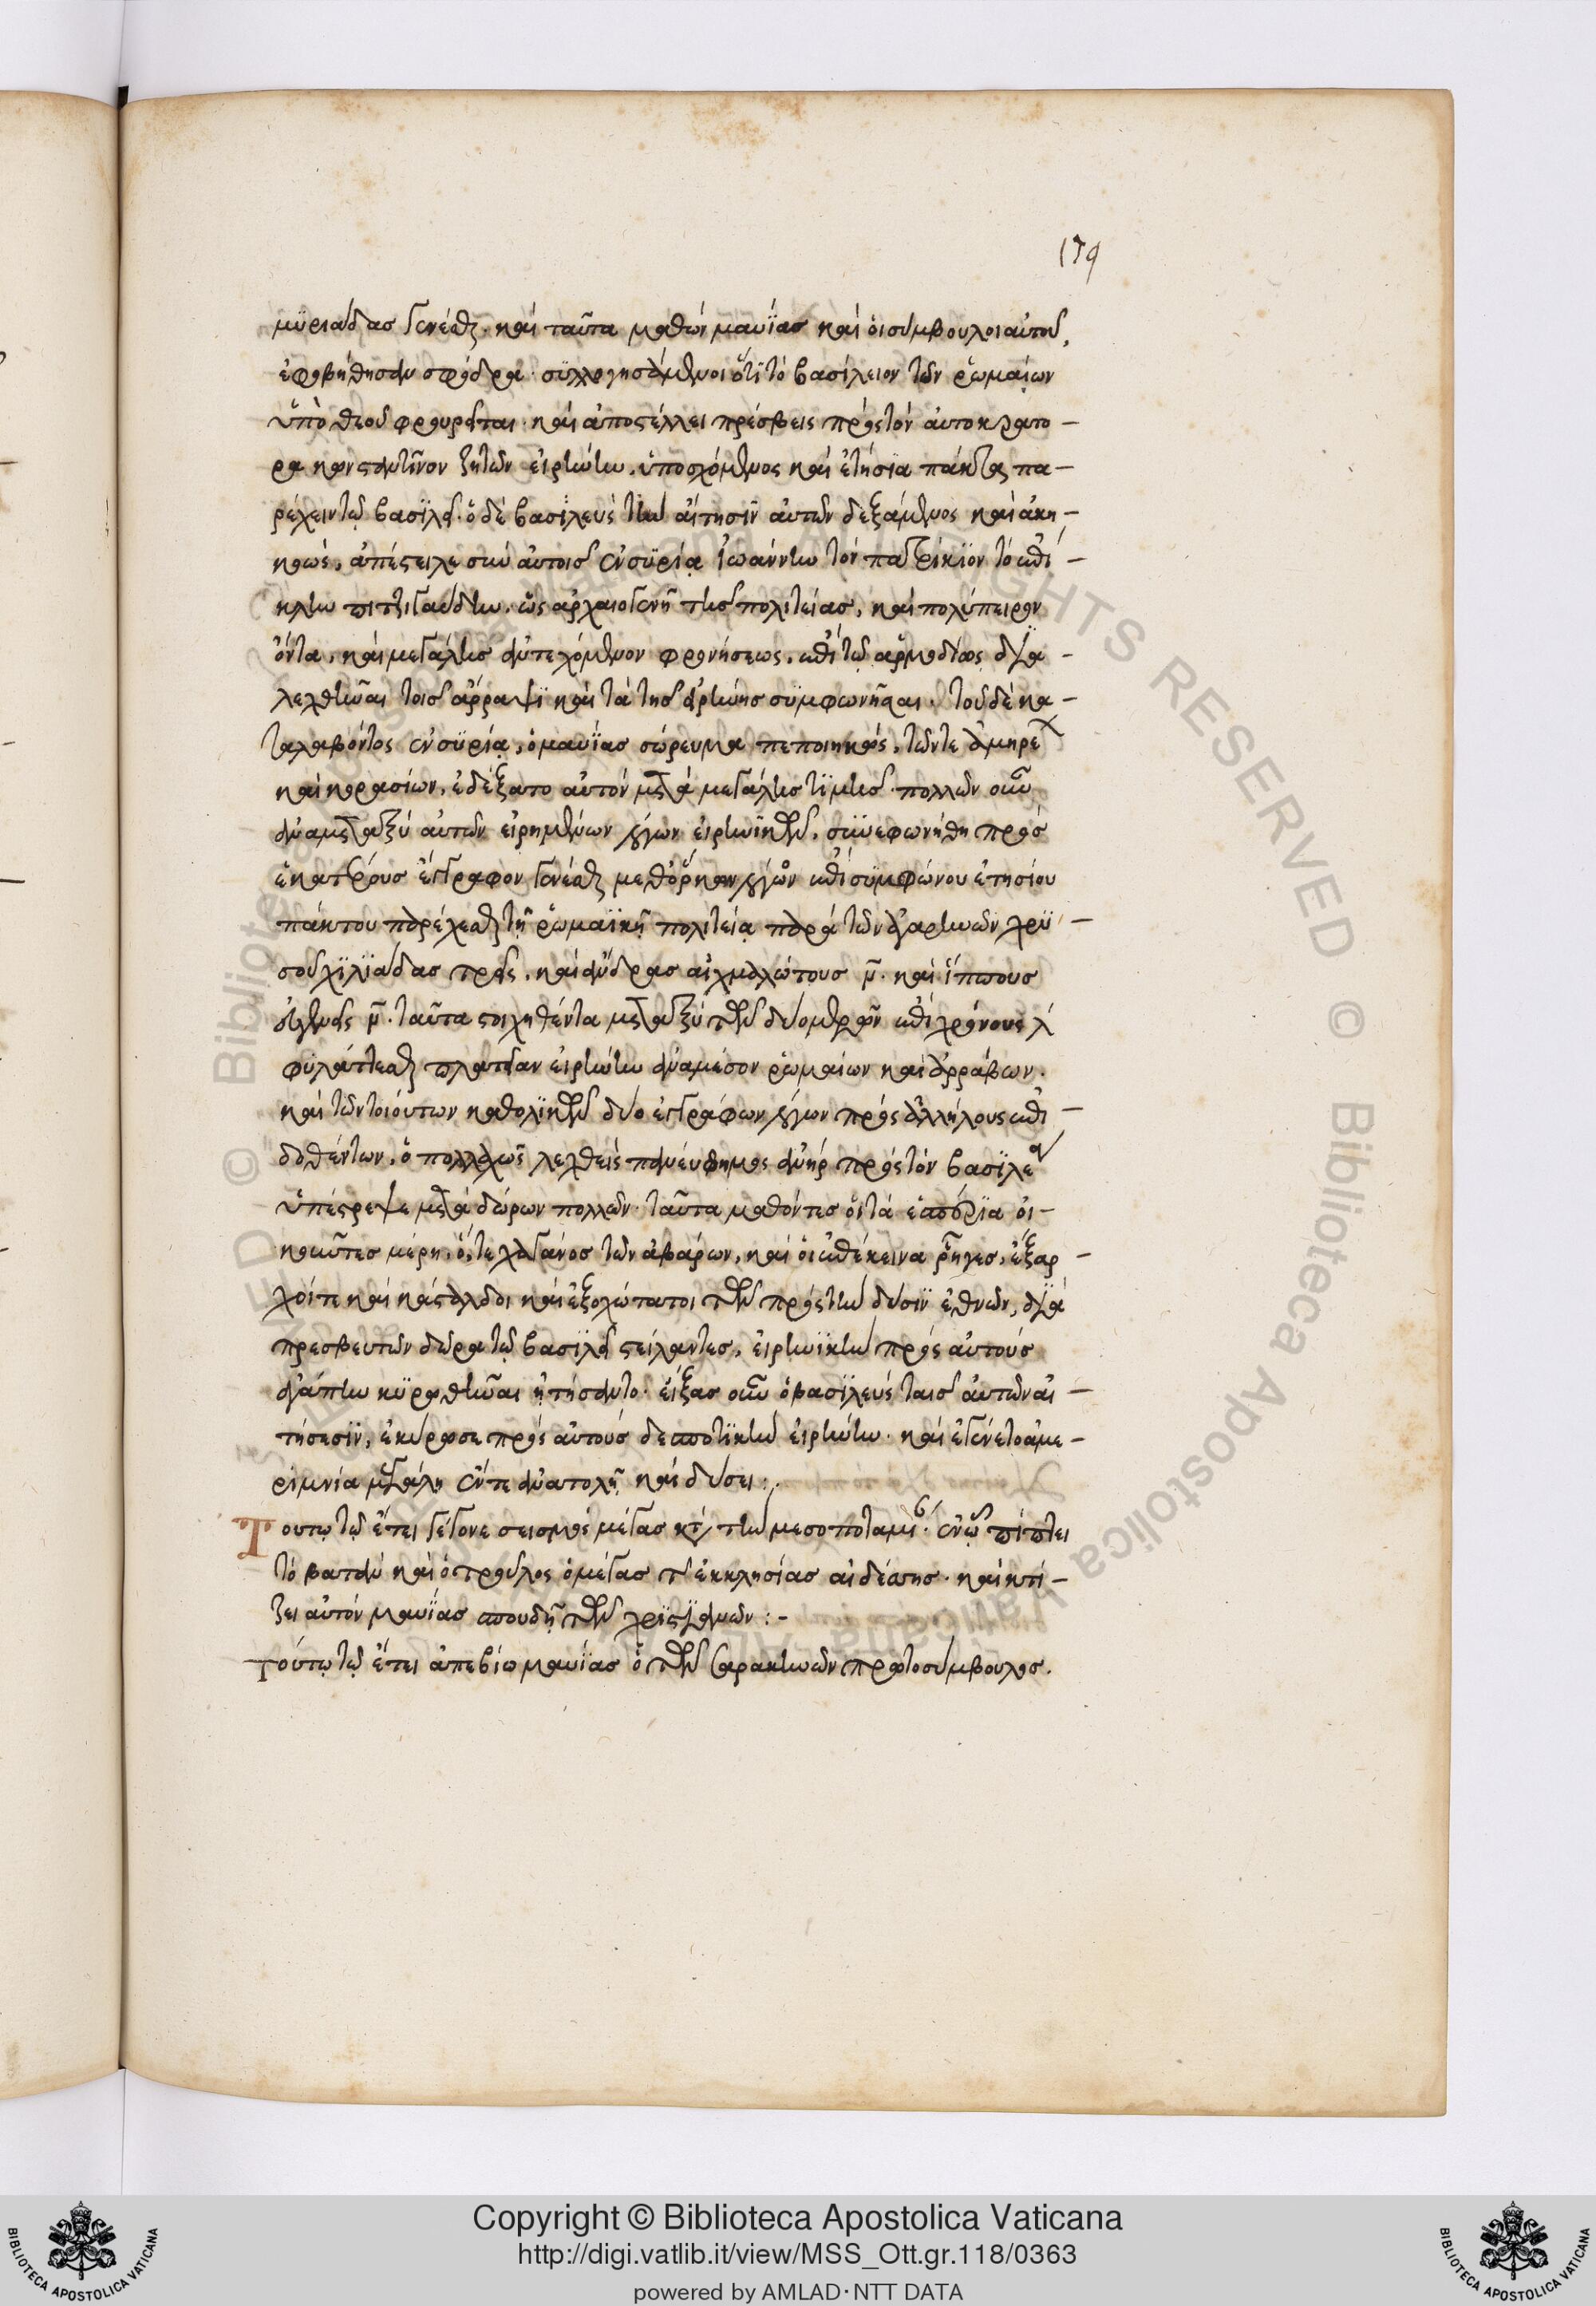 179
μϋριάδας γενέσθαι· καὶ ταῦτα μαθὼν μαυΐας καὶ οἱ σύμβουλοι αὐτοῦ,
ἐφοβήθησαν σφόδρα· συλλογησάμενοι ὅτι τὸ βασίλειον τῶν ῥωμαίων
ὑπὸ θεοῦ φρουρεῖται· καὶ ἀποστέλλει πρέσβεις πρὸς τὸν αὐτοκράτο-
ρα κωνσταντῖνον ζητῶν εἰρήνην, ὑποσχόμενος καὶ ἐτήσια πάκτα πα-
ρέχειν τῷ βασιλεῖ. ὁ δὲ βασιλεὺς τὴν αἴτησιν αὐτῶν δεξάμενος καὶ ἀκη-
κοὼς, ἀπέστειλε σὺν αὐτοῖς ἐν συρίᾳ ἰωάννην τὸν πατρίκιον τὸ ἐπί-
κλην πιτζιγαύδην, ὡς ἀρχαιογενῆ τῆς πολιτείας, καὶ πολύπειρον
ὄντα, καὶ μεγάλης ἀντεχόμενον φρονήσεως, ἐπὶ τῷ ἁρμοδίως δια-
λεχθῆναι τοῖς ἄρραψι καὶ τὰ τῆς εἰρήνης συμφωνῆσαι. τοῦ δὲ κα-
ταλαβόντος ἐν συρίᾳ, ὁ μαυΐας σώρευμα πεποιηκὼς, τῶν τε ἀμηρε
καὶ κορασίων, ἐδέξατο αὐτὸν μετὰ μεγάλης τιμῆς· πολλῶν οὖν
ἀναμεταξὺ αὐτῶν εἰρημένων λόγων εἰρηνικῶν, συνεφωνήθη πρὸς
ἑκατέρους ἔγγραφον γενέσθαι μεθόρκων λόγων ἐπὶ συμφώνου ἐτησίου
πάκτου παρέχεσθαι τῇ ῥωμαϊκῇ πολιτείᾳ παρὰ τῶν ἀγαρηνῶν χρυ-
σοῦ χιλιάδας τρεῖς, καὶ ἄνδρας αἰχμαλώτους ν̄. καὶ ἵππους
εὐγενεῖς ν̄. ταῦτα στοιχηθέντα μεταξὺ τῶν δύο μερῶν ἐπὶ χρόνους λ΄
φυλάττεσθαι πλατεῖαν εἰρήνην ἀναμέσον ῥωμαίων καὶ ἀρράβων.
καὶ τῶν τοιούτων καθολικῶν δύο ἐγγράφων λόγων πρὸς ἀλλήλους ἐπι-
δοθέντων, ὁ πολλαχῶς λεχθεὶς πανεύφημος ἀνὴρ πρὸς τὸν βασιλέα
ὑπέστρεψε μετὰ δώρων πολλῶν· ταῦτα μαθόντες οἱ τὰ ἑσπέρια οἰ-
κοῦντες μέρη, ὅ, τε χαγάνος τῶν ἀβάρων, καὶ οἱ ἐπέκεινα ῥῆγες, ἔξαρ-
χοί τε καὶ κάσταλδοι καὶ ἐξοχώτατοι τῶν πρὸς τὴν δύσιν ἐθνῶν, διὰ
πρεσβευτῶν δῶρα τῷ βασιλεῖ στείλαντες, εἰρηνικὴν πρὸς αὐτοὺς
ἀγάπην κυρωθῆναι ᾐτήσαντο· εἴξας οὖν ὁ βασιλεὺς ταῖς αὐτῶν αἰ-
τήσεσιν, ἐκύρωσε πρὸς αὐτοὺς δεσποτικὴν εἰρήνην· καὶ ἐγένετο ἀμε-
ριμνία μεγάλη ἔν τε ἀνατολῇ καὶ δύσει:.
Τούτῳ τῷ ἔτει γέγονε σεισμὸς μέγας κατὰ τὴν μεσοποταμί. ἐν ᾧ πίπτει
τὸ βατὰν καὶ ὁ τροῦλος ὁ μέγας τῆς ἐκκλησίας αἰδέσης. καὶ κτί-
ζει αὐτὸν μαυΐας σπουδῇ τῶν χριστιανῶν:-
Τούτῳ τῷ ἔτει ἀπεβίω μαυΐας ὁ τῶν σαρακηνῶν πρωτοσύμβουλος.
Copyright © Biblioteca Apostolica Vaticana
http://digi.vatlib.it/view/MSS_Ott.gr.118/0363
powered by AMLAD·NTT DATA